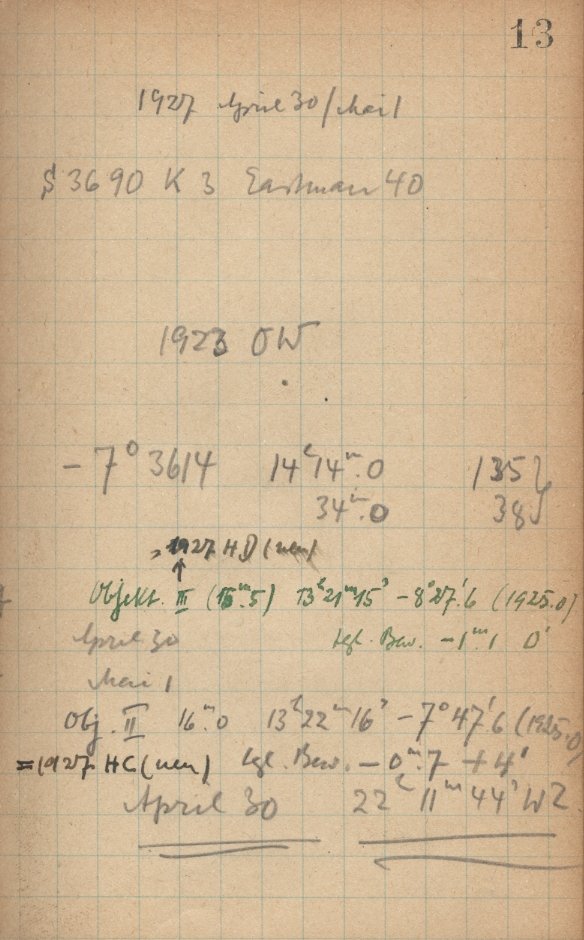 13
1927 April 30/Mai 1
3690 K 3 Eastman 40
1923 OW
-7° 3614 14ʰ14ᵐ.0 135
34ᵐ.0 38
1927 HD (neu)
Objekt. III (16ᵐ.5) 13ʰ21ᵐ15ˢ -8°27'.6 (1925.0)
April 30 tgl. Bew. -1ᵐ.1 0'
Mai 1
Obj. II 16ᵐ.0 13ʰ22ᵐ16ˢ -7°47'.6 (1925.0)
=1927 HC (neu) tgl. Bew. -0ᵐ.7 +4'
April 30 22ʰ 11ᵐ 44ˢ WZ